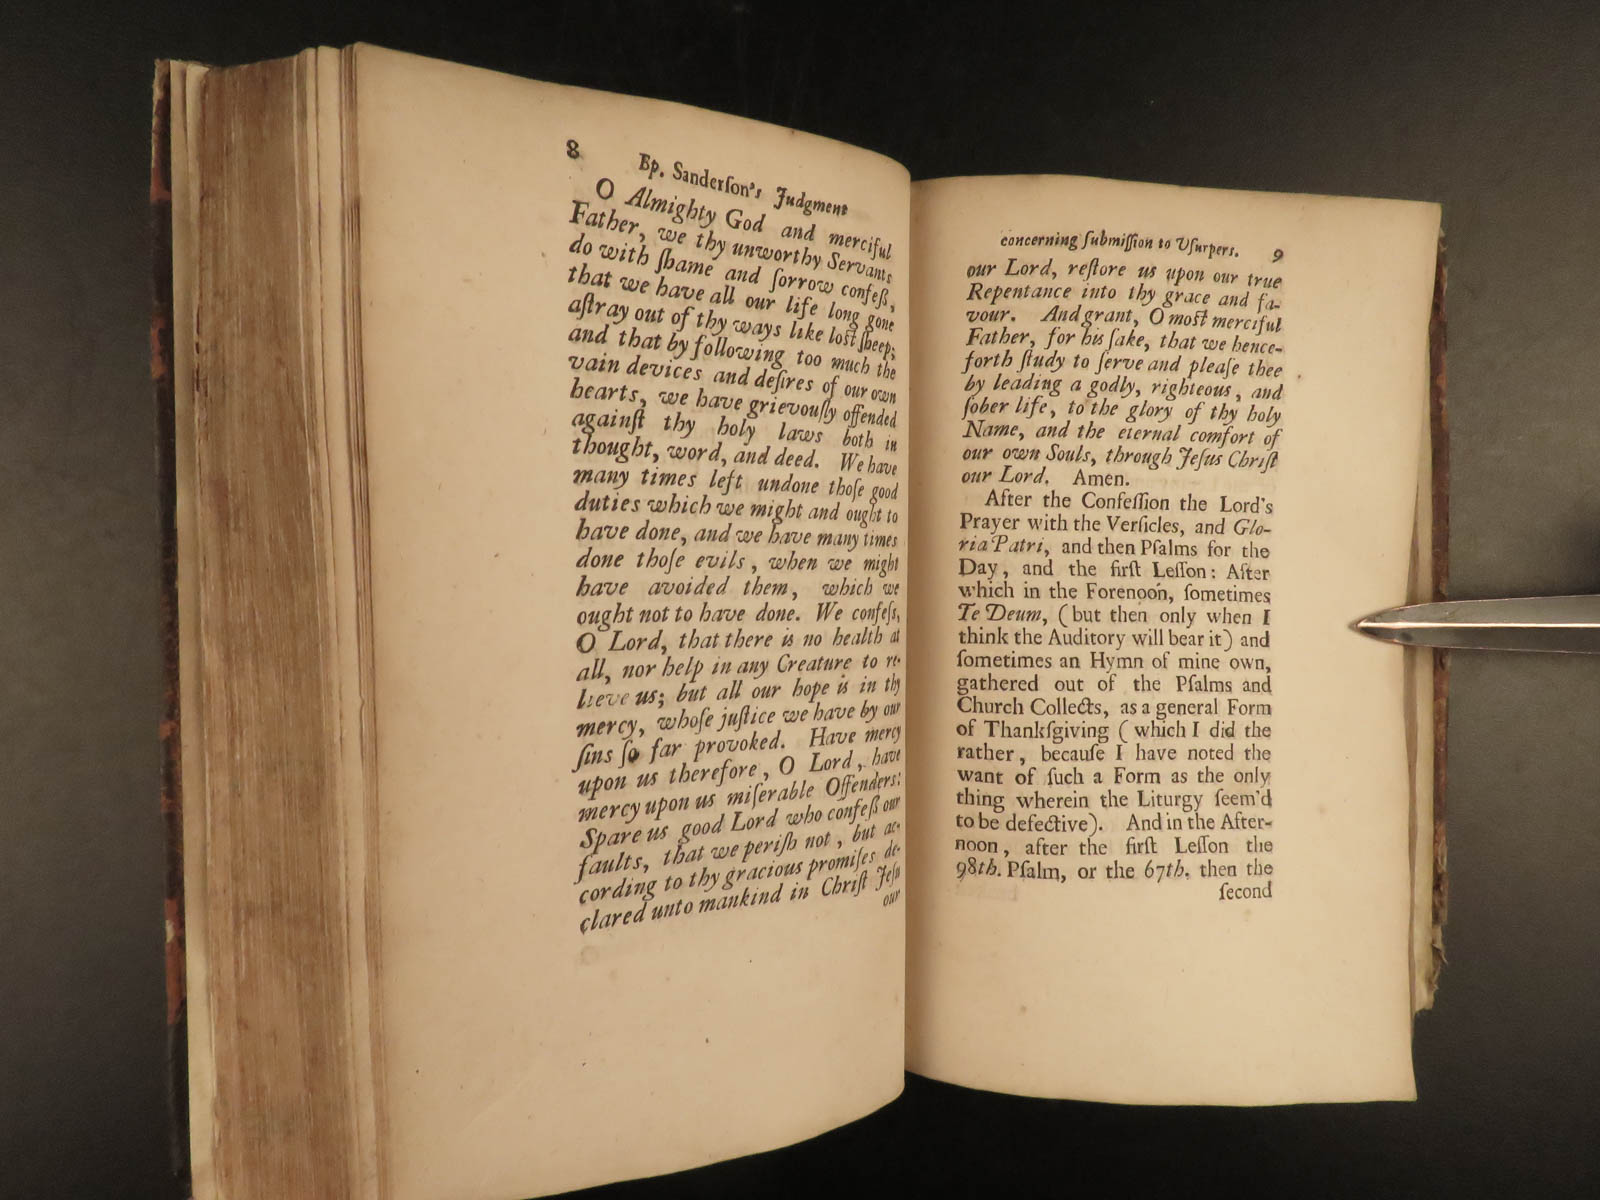 8 Bp. Sanderſon's Judgment
O Almighty God and merciful
Father, we thy unworthy Servants
do with ſhame and ſorrow confeſs,
that we have all our life long gone
aſtray out of thy ways like loſt ſheep;
and that by following too much the
vain devices and deſires of our own
hearts, we have grievouſly offended
againſt thy holy laws both in
thought, word, and deed. We have
many times left undone thoſe good
duties which we might and ought to
have done, and we have many times
done thoſe evils, when we might
have avoided them, which we
ought not to have done. We confeſs,
O Lord, that there is no health at
all, nor help in any Creature to re-
lieve us; but all our hope is in thy
mercy, whoſe juſtice we have by our
ſins ſo far provoked. Have mercy
upon us therefore, O Lord, have
mercy upon us miſerable Offenders:
Spare us good Lord who confeſs our
faults, that we periſh not, but ac-
cording to thy gracious promiſes de-
clared unto mankind in Chriſt Jeſu
our
concerning ſubmiſſion to Uſurpers. 9
our Lord, reſtore us upon our true
Repentance into thy grace and fa-
vour. And grant, O moſt merciful
Father, for his ſake, that we hence-
forth ſtudy to ſerve and pleaſe thee
by leading a godly, righteous, and
ſober life, to the glory of thy holy
Name, and the eternal comfort of
our own Souls, through Jeſus Chriſt
our Lord. Amen.
After the Confeſſion the Lord's
Prayer with the Verſicles, and Glo-
ria Patri, and then Pſalms for the
Day, and the firſt Leſſon: After
which in the Forenoon, ſometimes
Te Deum, (but then only when I
think the Auditory will bear it) and
ſometimes an Hymn of mine own,
gathered out of the Pſalms and
Church Collects, as a general Form
of Thankſgiving (which I did the
rather, becauſe I have noted the
want of ſuch a Form as the only
thing wherein the Liturgy ſeem'd
to be defective). And in the After-
noon, after the firſt Leſſon the
98th. Pſalm, or the 67th. then the
ſecond